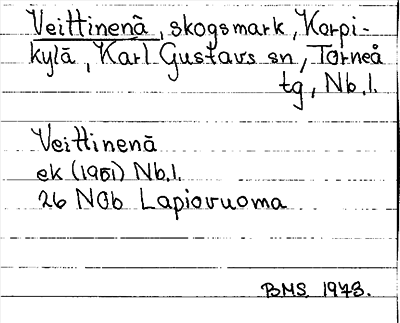 Veittinenä, skogsmark, Karpi-
kylä, Karl Gustavs sn, Torneå
tg, Nb.l.
Veittinenä
ek (1961) Nb.l.
26 N0b Lapiovuoma
BMS 1973.